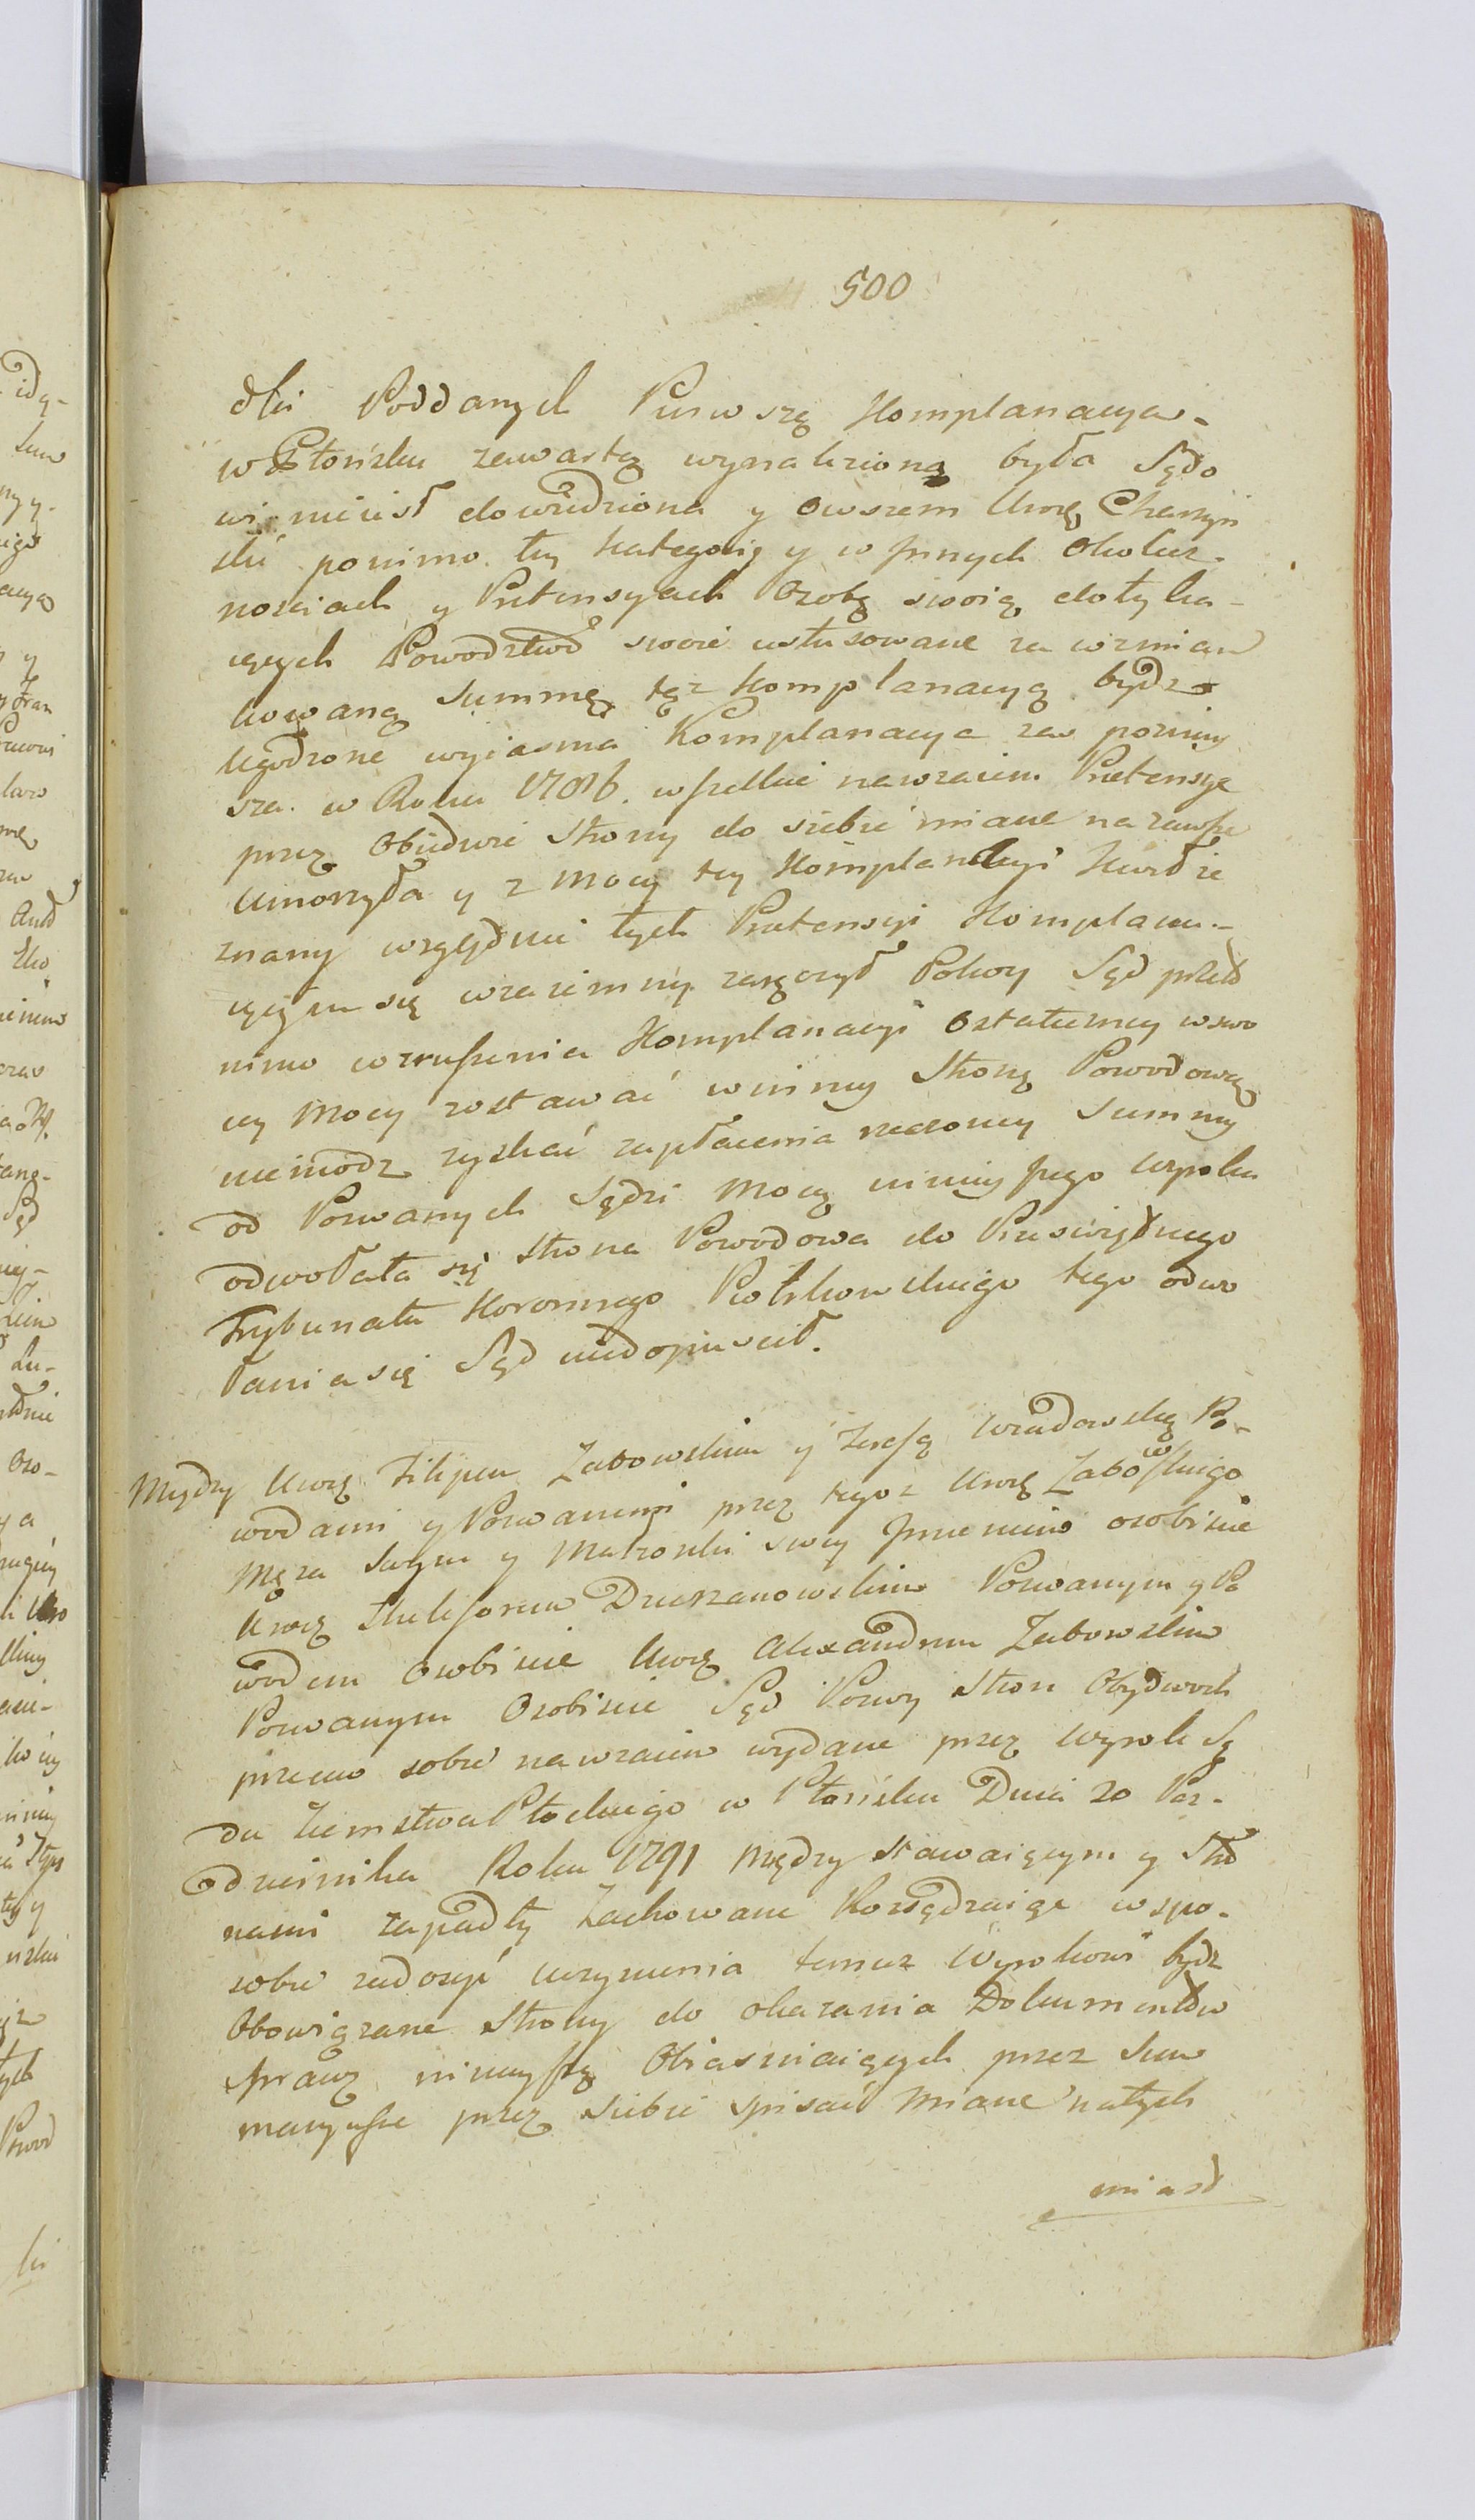 500
dla Poddanych Pierwszą Komplanacya-
w Płońsku zawartą wynaleziona była Sądo
wi niiest dowiedziona y owszem Urog Charzyń
ski pomimo tey kategorią y w Jnnych Okolicz-
nościach y Pretensyach Osobę swoią dotyka-
iących Powodztwo swoie ustusowane za wzmian
kowaną Summę tąż Komplanacyą bydź
Ugodzone wyiasnia Komplanacya zas pozniey
sza w Roku 1786. wszelkie nawzaiem Pretensye
przez Obiedwie Strony do siebie miane na zawsze
Umorzyła y z Mocy tey Komplanacyi Kwit ze
znany względnie tych Pretensyi Komplanu-
iącym się wzaiemny zaręczył Pokoy Sąd przeto
nimo wzruszenia Komplanacyi Ostateczney wswo
iey Mocy zostawać winney Stronę Powodową
niemodz zyskać zapłacenia rzeczoney Summy
od Pozwanych Sądzi Mocą ninieyszego Wyroku
odwołała się Strona Powodowa do Prześwietnego
Trybunału Koronnego Piotrkowskiego tego odwo
łania się Sąd niedopuscił.
Między Urog Filipem Zabowskim y Teresą Wiadowską Po-
wodami y Pozwanemi przez tegoż Urog Zabowskiego
Męża Swym y Małzonki swey Jmieniem osobiscie
Urog Dzierzanowskim Pozwanym y Po
wodem Osobiscie Urog Alexandrem Zabowskim
Pozwanym Osobiscie Sąd Pozwy Stron Obydwoch
przeciw sobie nawzaiem wydane przez Wyrok Są
du Ziemstwa Płockiego w Płońsku Dnia 20 Paz-
dziernika Roku 1791 Między stawaiącym y Stro
nami zapadły Zachowane Rozsądzaiąc wspo-
sobie zadosyć uczynienia temuż Wyrokowi bydź
Obowiązane Strony do okazania Dokumentow
sprawę ninieyszą Obiasniaiących przez Sum
maryusze przez siebie spisać miane natych
miast